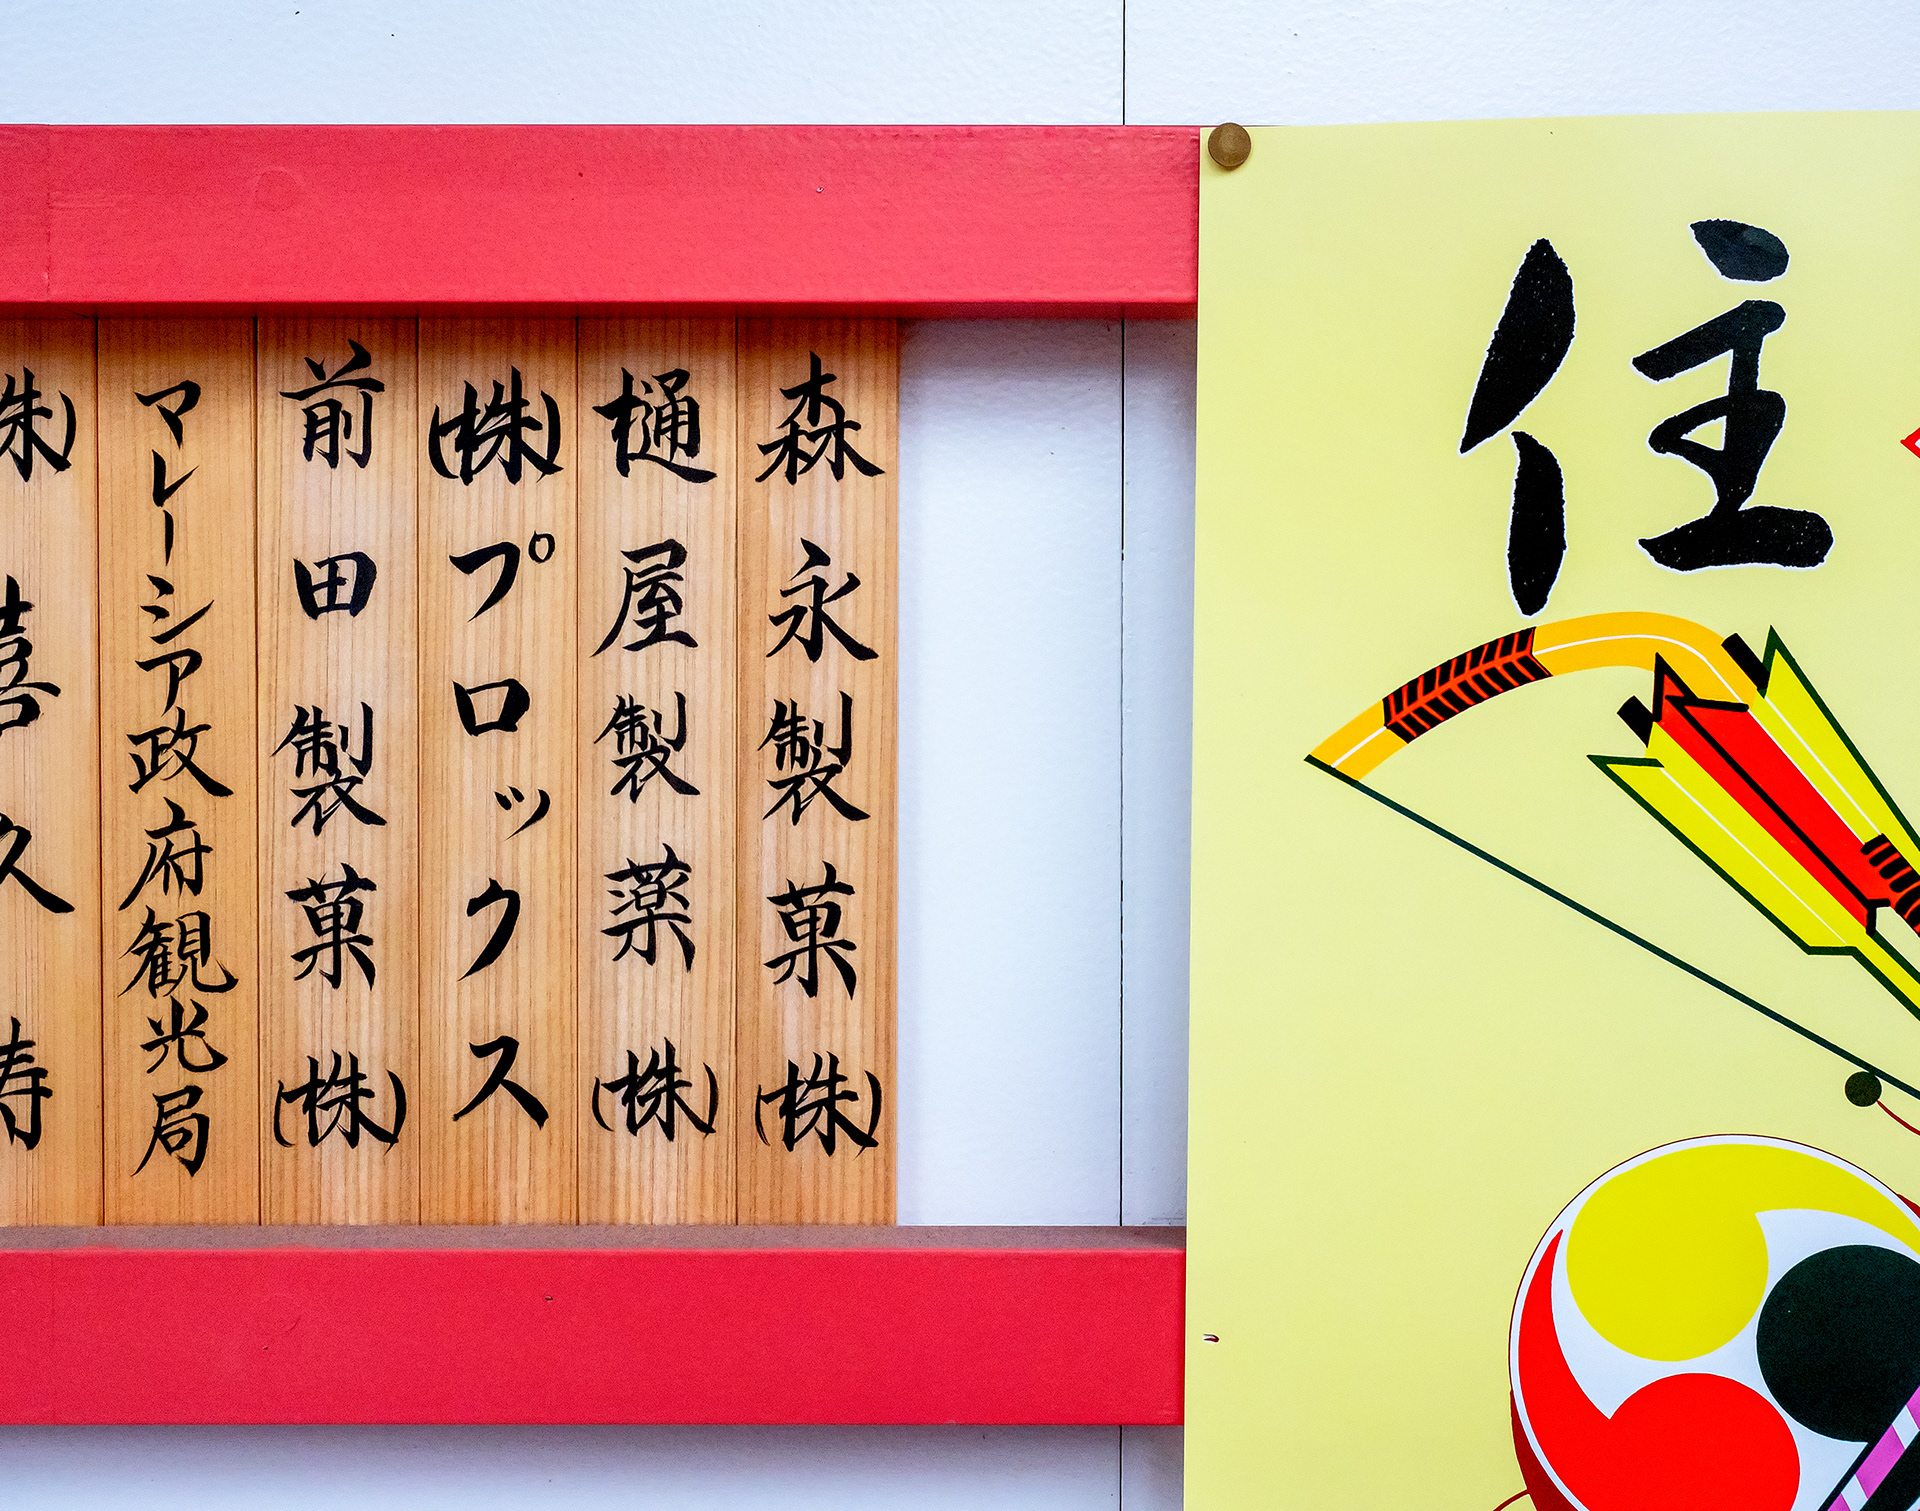 住
森永製菓(株)
樋屋製薬(株)
(株)プロックス
前田製菓(株)
マレーシア政府観光局
株)喜久寿